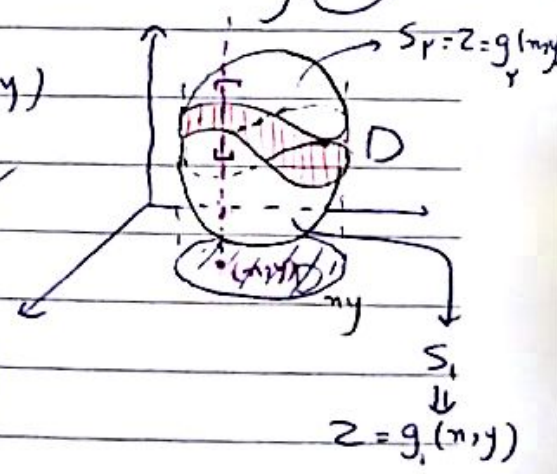 y)
S₂ : z = g₂(x,y)
D
(x,y)
xy
S₁
⇓
z = g₁(x,y)